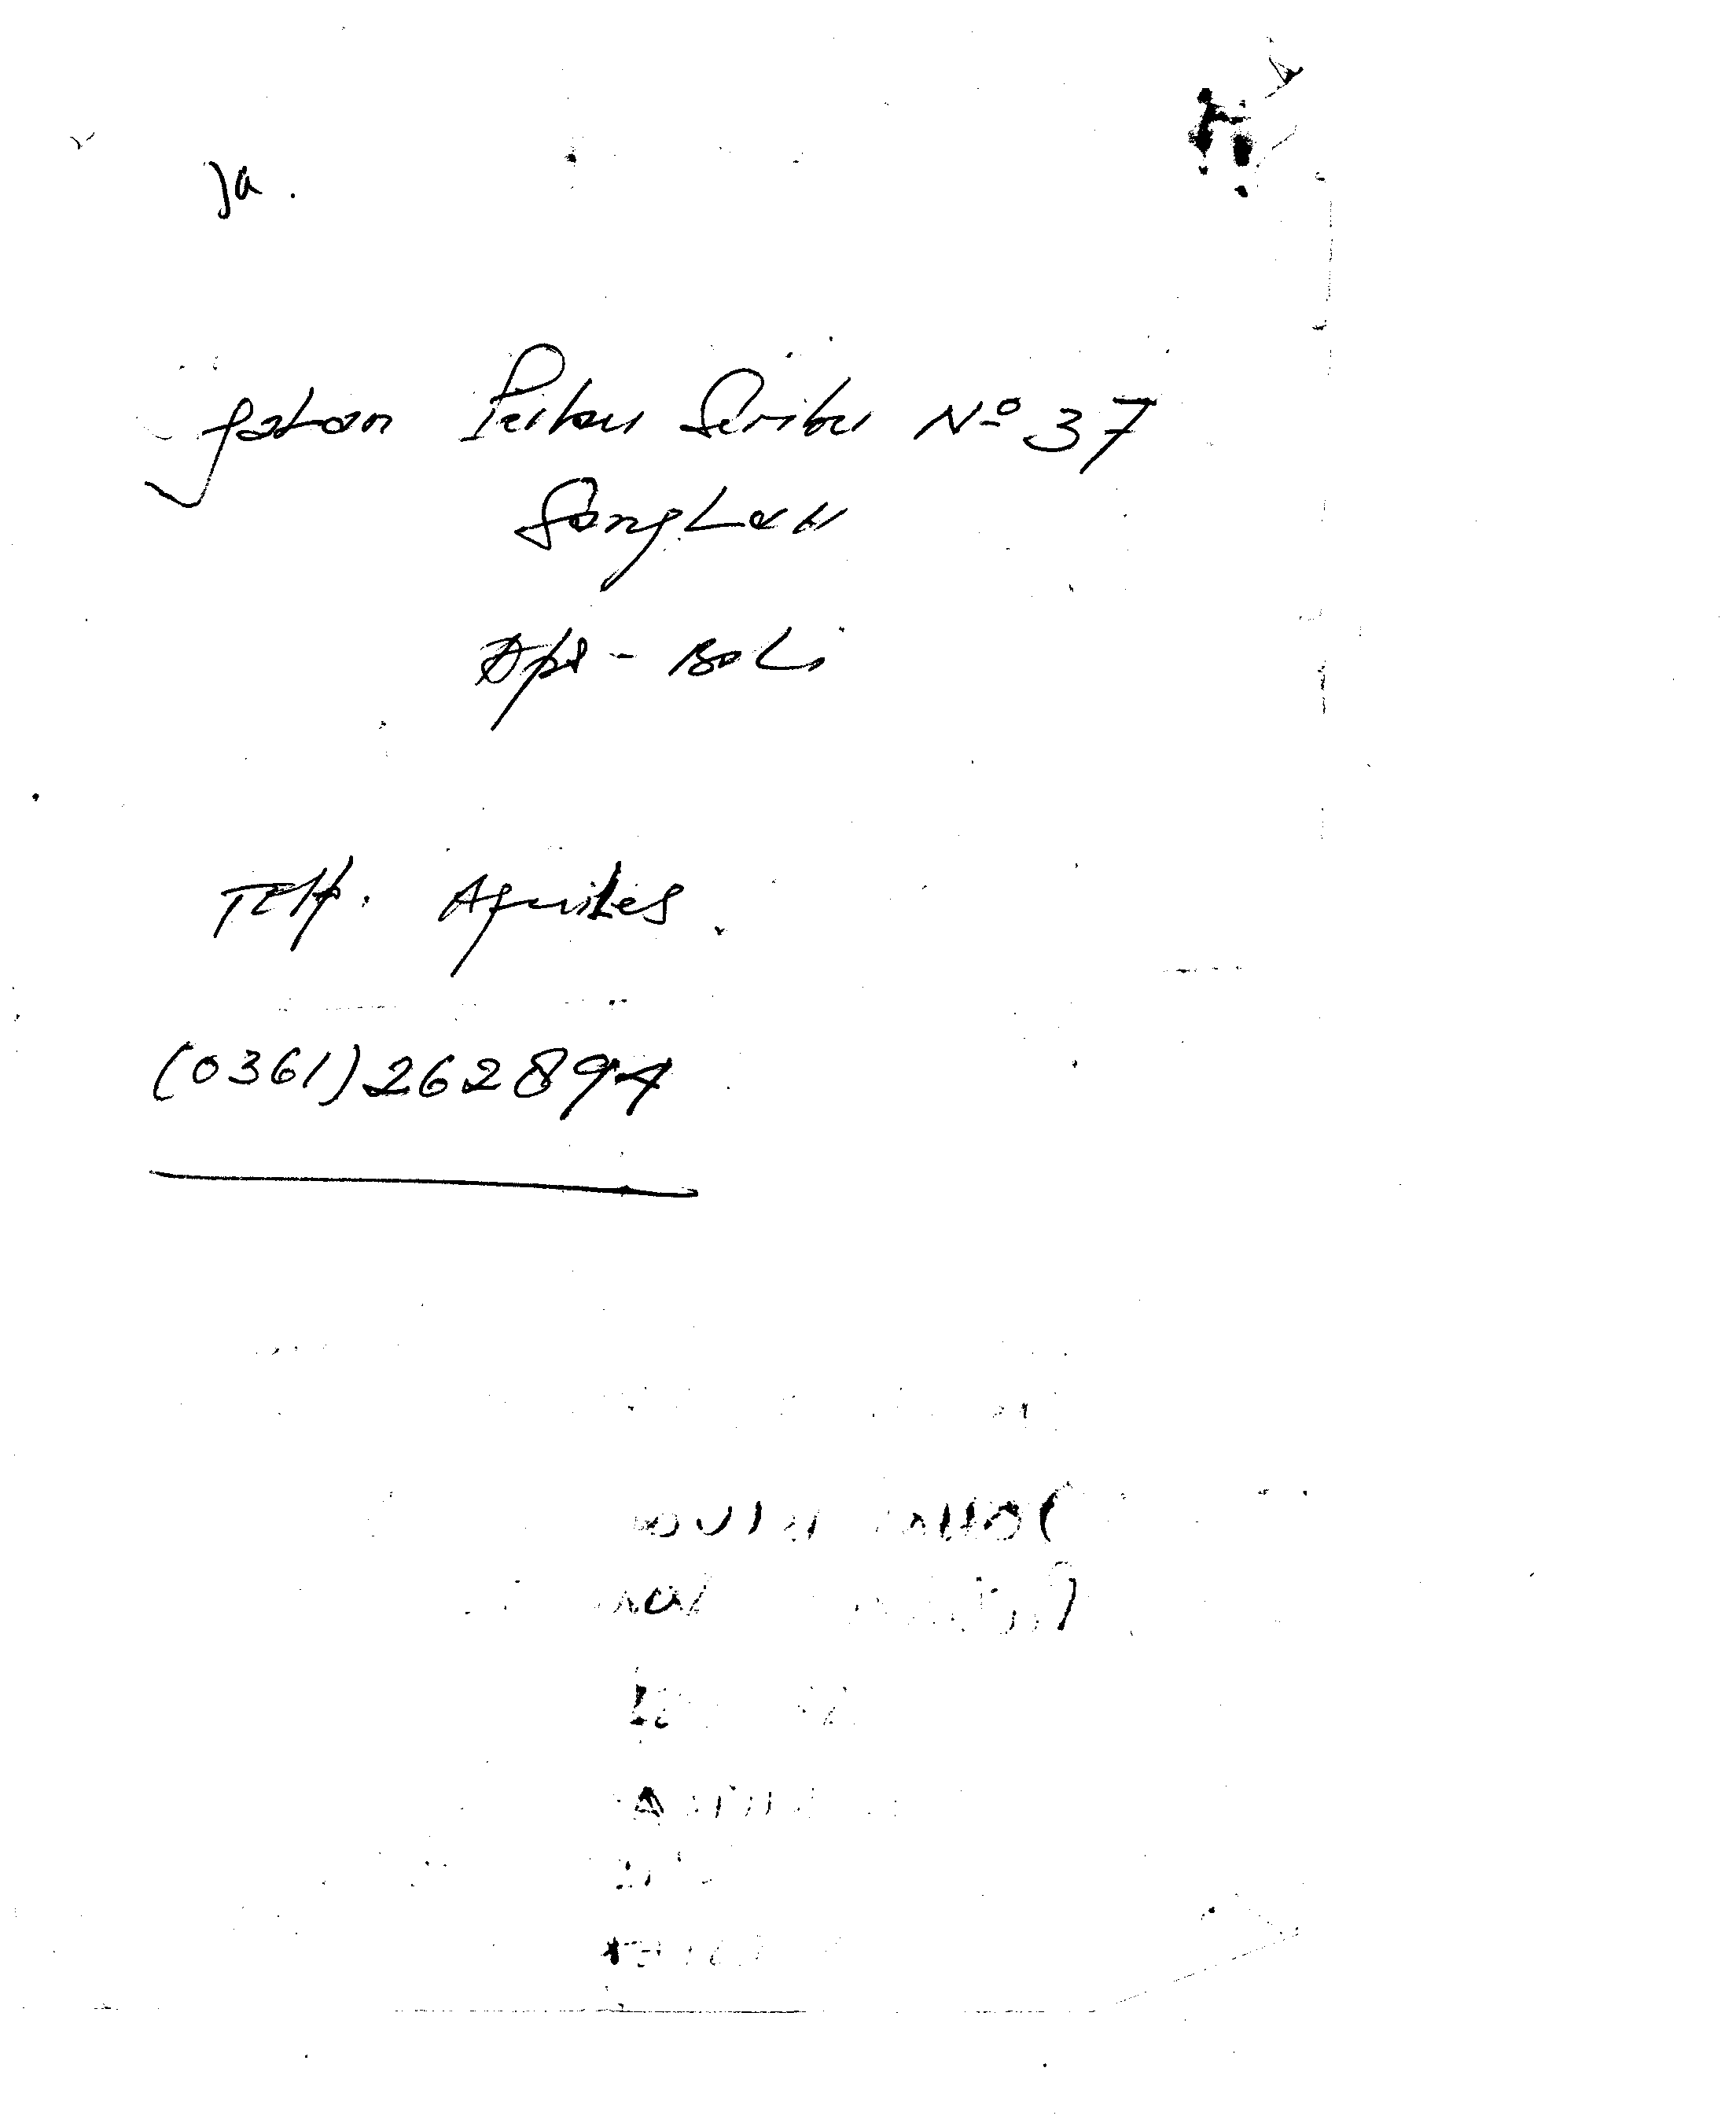 Ja.
Jalan Pulau Seribu Nº 37
Sanglah
Dps - Bali
Telf. Aquiles.
(0361) 262894